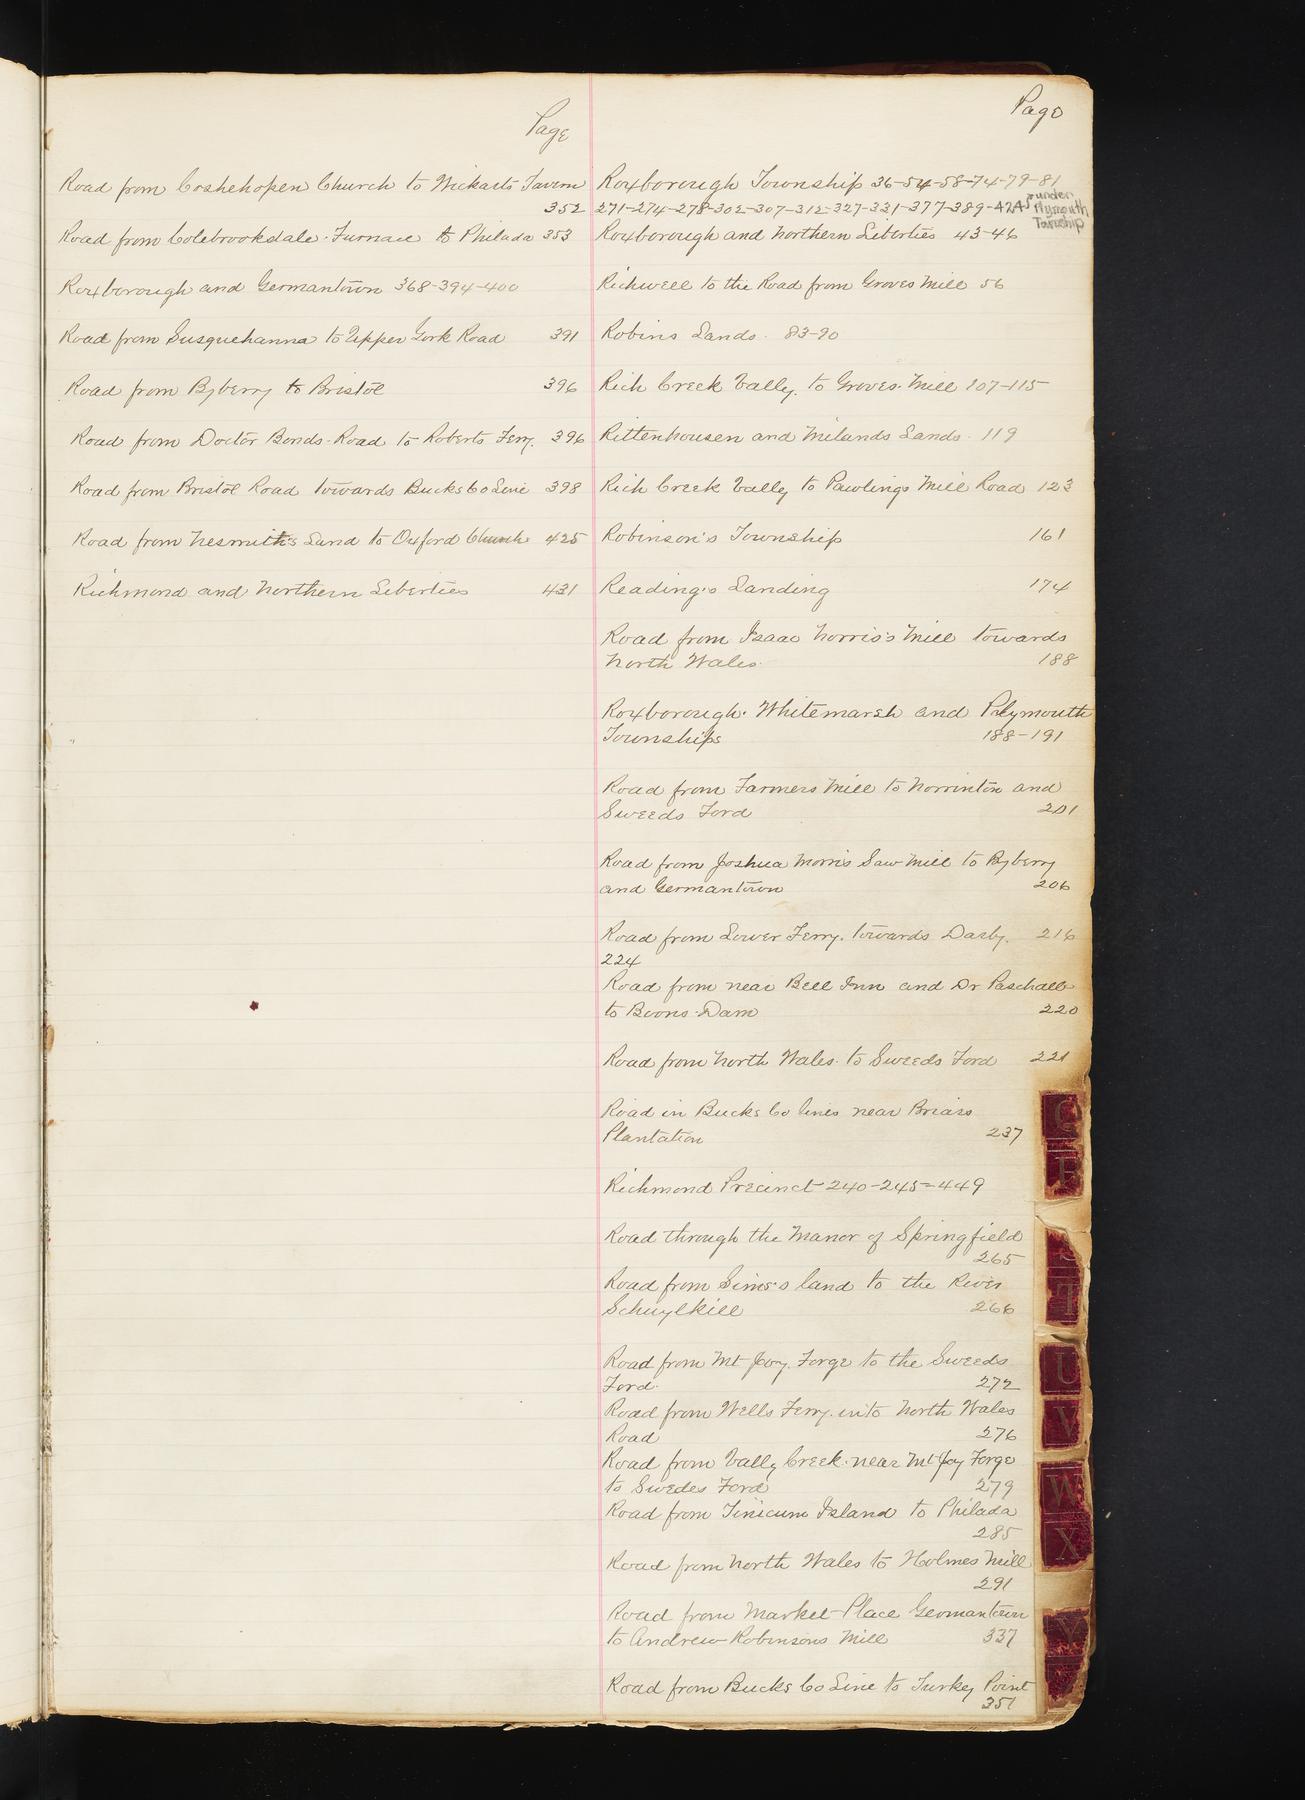 Page
Road from Coshehopen Church to Wickarts Tavern
352
Road from Colebrookdale Furnace to Philada 353
Roxborough and Germantown 368-394-400
Road from Susquehanna to Upper York Road 391
Road from Byberry to Bristol 396
Road from Doctor Bonds Road to Roberts Ferry. 396
Road from Bristol Road towards Bucks Co Line 398
Road from Nesmith's Land to Oxford Church 425
Richmond and Northern Liberties 431
Page
Roxborough Township 36-54-58-74-79-81
271-274-278-302-307-312-327-331-377-389-424
under Plymouth Township
Roxborough and Northern Liberties 43-46
Richwell to the Road from Groves Mill 56
Robins Lands. 83-90
Rich Creek Vally. to Groves Mill 107-115
Rittenhousen and Milands Lands. 119
Rich Creek Vally to Pawlings Mill Road 123
Robinson's Township 161
Reading's Landing 174
Road from Isaac Norris's Mill towards
North Wales. 188
Roxborough. Whitemarsh and Plymouth
Townships 188-191
Road from Farmers Mill to Norrinton and
Sweeds Ford 201
Road from Joshua Morris Saw Mill to Byberry
and Germantown 206
Road from Lower Ferry. towards Darby. 216
224
Road from near Bell Inn and Dr Paschalls
to Boons Dam 220
Road from North Wales to Sweeds Ford 221
Road in Bucks Co lines near Briars
Plantation 237
Richmond Precinct 240-245-449
Road through the Manor of Springfield
265
Road from Sims's land to the River
Schuylkill 266
Road from Mt Joy. Forge to the Sweeds
Ford. 272
Road from Wells Ferry. into North Wales
Road 276
Road from Vally Creek. near Mt Joy Forge
to Swedes Ford 279
Road from Tinicum Island to Philada
285
Road from North Wales to Holmes Mill
291
Road from Market Place Geomantown
to Andrew Robinsons Mill 337
Road from Bucks Co Line to Turkey Point
351
T
U
V
W
X
Y